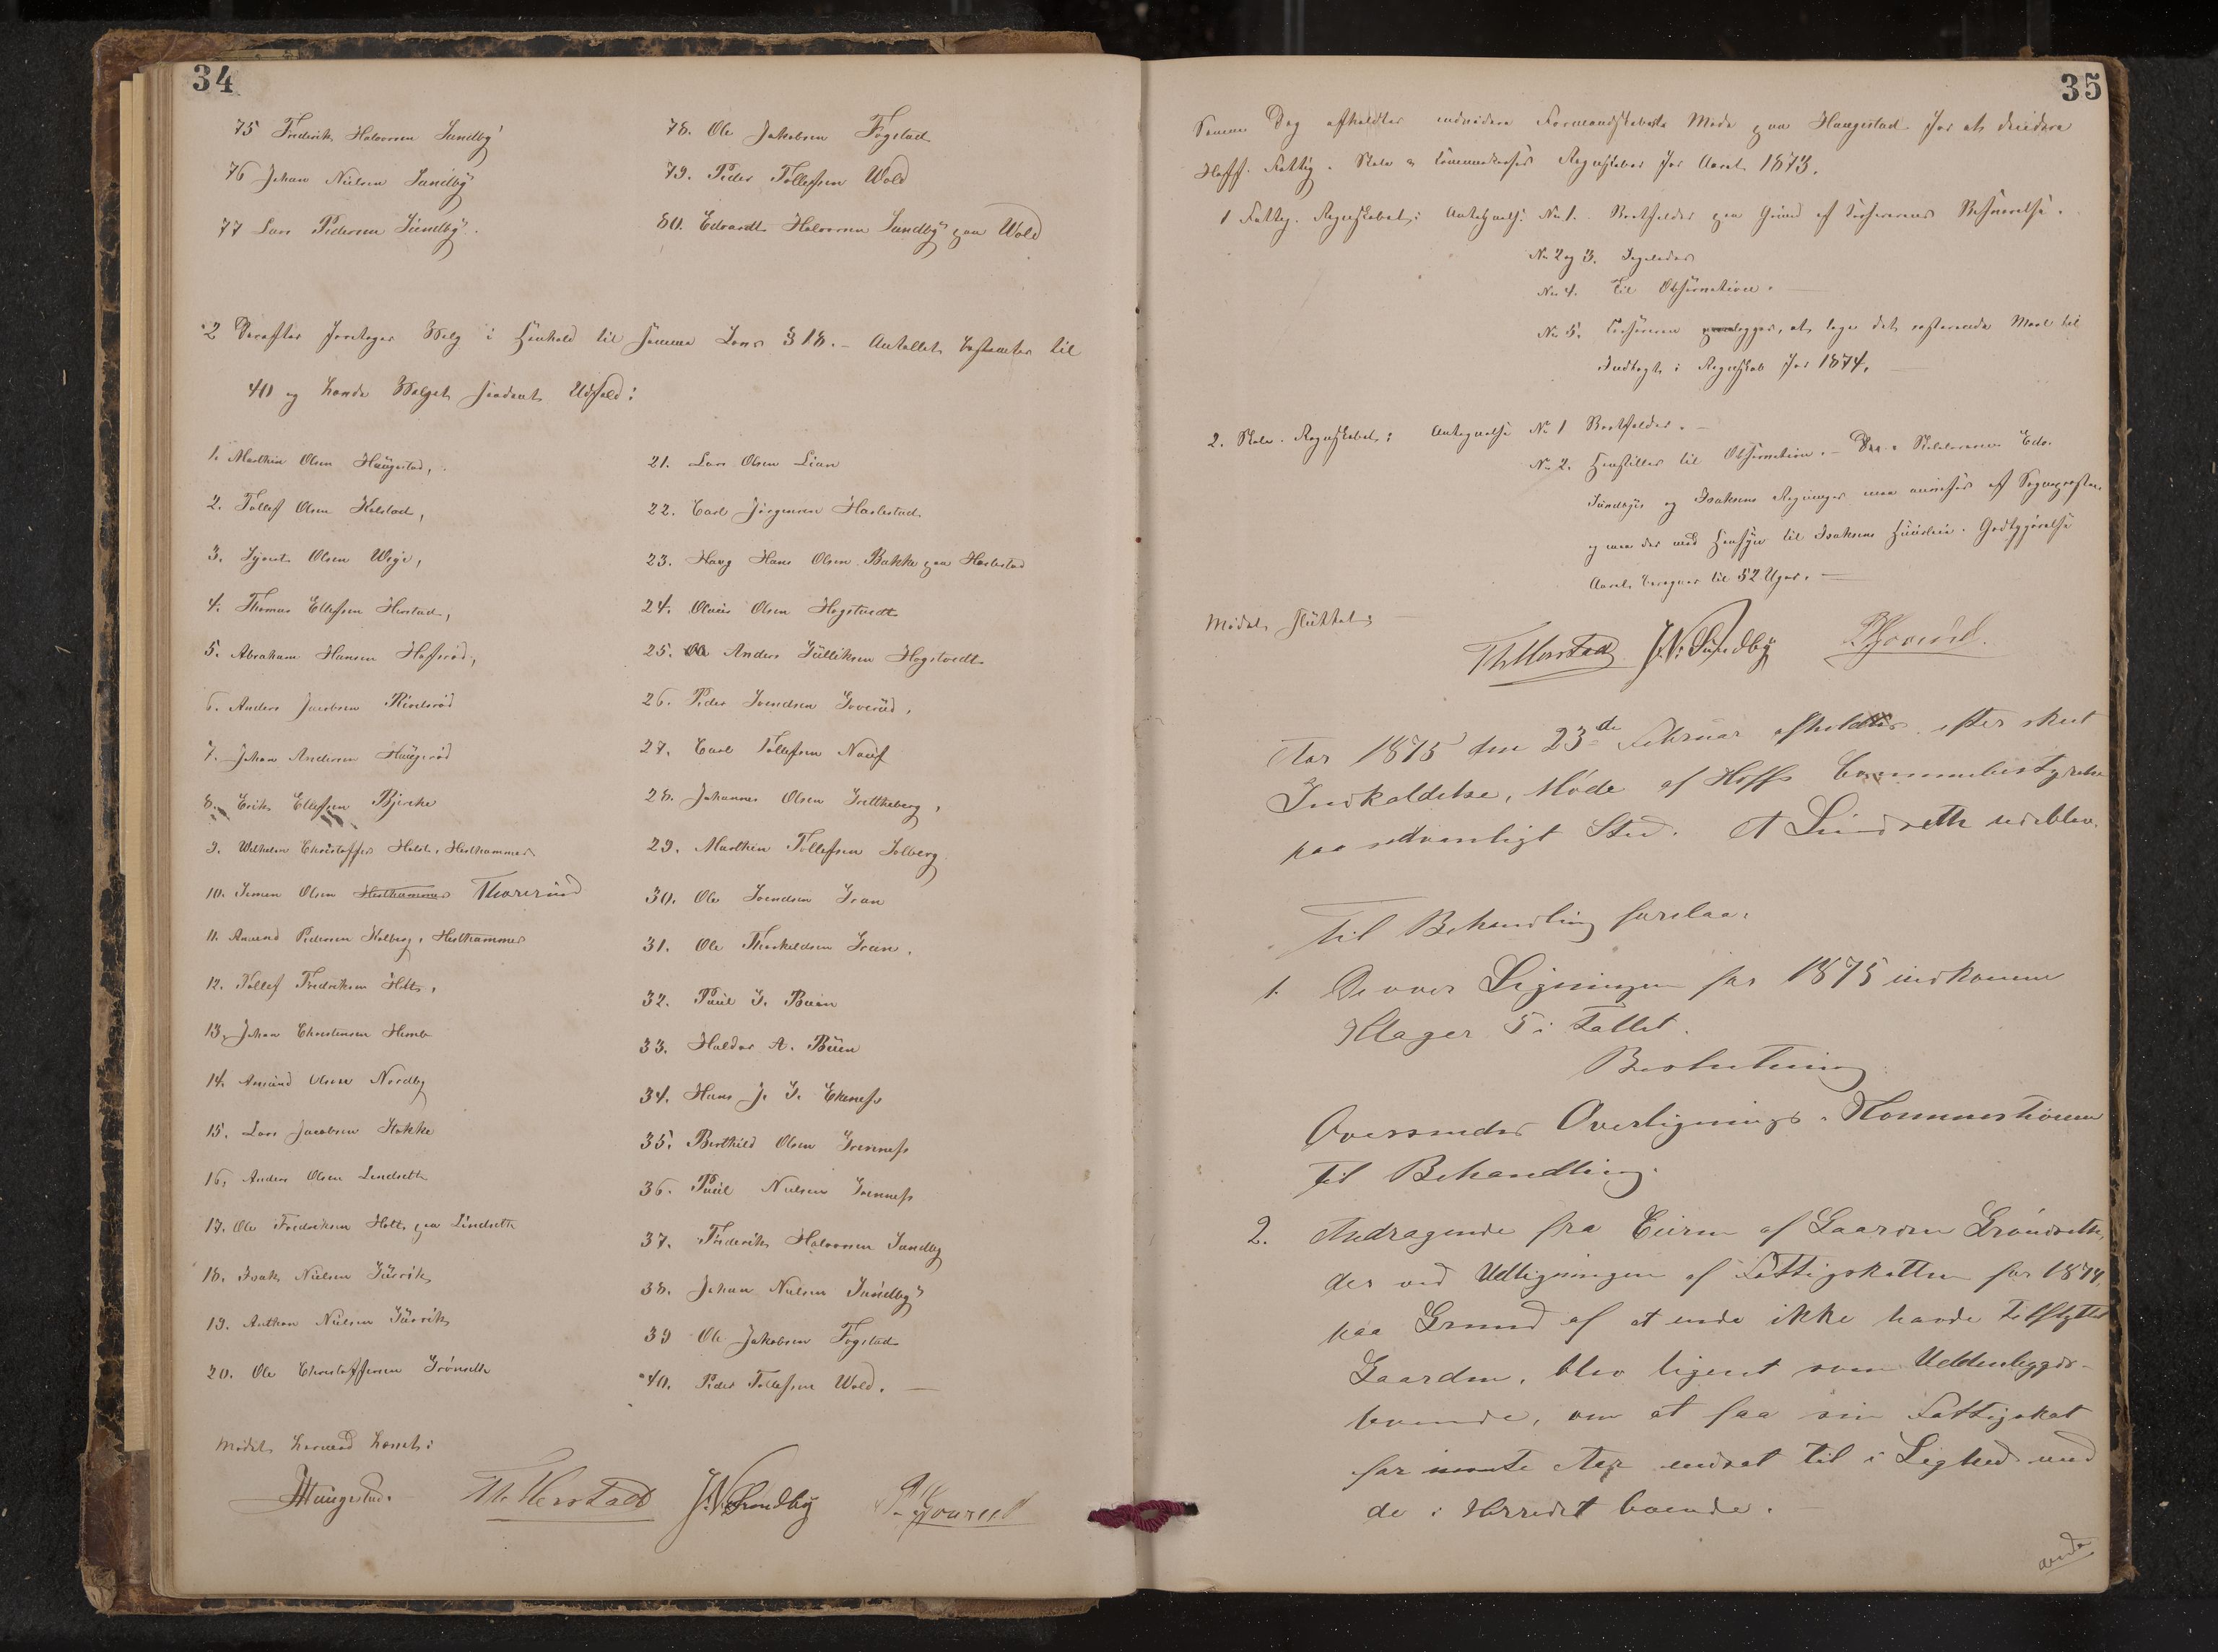 34
75 Frederik Halvorsen Sundby
76 Johan Nielsen Sundby
77 Lars Pedersen Sundby.
78. Ole Jakobsen Fogstad
79. Peder Tollefsen Wold
80. Edvardt Halvorsen Sundby paa Wold
2 Derefter foretoges Valg i Henhold til samme Lovs § 18. – Antallet bestemtes til
40 og havde Valget saadant Udfald:
1. Marthin Olsen Haugestad,
2. Tollef Olsen Holstad,
3. Syvert Olsen Weje,
4. Thomas Ellefsen Herstad,
5. Abraham Hansen Hoffsrød,
6. Anders Jacobsen
7. Johan Andersen Haugerød
8. Erik Ellefsen Bjerke
9. Wilhelm Christoffer Holst, Hesthammer
10. Simen Olsen Hesthammer Thorerud
11. Amund Pedersen Holberg, Hesthammer
12. Tollef Fredriksen Holt,
13. Johan Christensen Hemb
14. Amund Olsen Nordby
15. Lars Jacobsen Stokke
16. Anders Olsen Lindseth
17. Ole Fredriksen Holt paa Lindseth
18. Isak Nielsen Gurrik
19. Anthon Nielsen Gurrik
20. Ole Christoffersen Grønseth
21. Lars Olsen Lian
22. Carl Jørgensen Haslestad
23. Hans Olsen Bakke paa Haslestad
24. Olaus Olsen Hogstvedt
25. Anders Gulliksen Hogstvedt
26. Peder Svendsen Groverud,
27. Carl Tollefsen Nauf
28. Johannes Olsen Grettheberg,
29. Marthin Tollefsen Solberg
30. Ole Svendsen Gran
31. Ole Thorkeldsen Gran,
32. Paul G. Buen
33. Haldor A. Buen
34. Hans J. G. Ekeness
35. Berthild Olsen Grenness
36. Paul Nielsen Grenness
37. Frederik Halvorsen Sundby
38. Johan Nielsen Sundby
39 Ole Jakobsen Fogstad
40. Peder Tollefsen Wold. –
Mødet hermed hævet:
Haugestad. Th. Herstad J. N. Sundby
35
Samme Dag afholdtes endvidere Formandskabets Møde paa Haugestad for at decidere
Hoffs Fattig-, Skole- og Communekasses Regnskaber for Aaret 1873.
1 Fattig-Regnskabet: Antegnelse No 1. Bortfalder paa Grund af Kassererens Besvarelse.
No 2 og 3. Ligeledes
No 4. Til Observation.
No 5. Kassereren paalægges, at tage det resterende Maal til
Indtægt i Regnskab for 1874.
2. Skole-Regnskabet: Antegnelse No 1 Bortfalder. –
No 2. Henstilles til Observation. – Edv.
Sundbyes og Isaksens Regninger ere anviste af Sognepresten
og med Hensyn til Isaksens Huusleie-Godtgjørelse
Aaret beregnes til 52 Uger. –
Mødet sluttet:
Th. Herstad J. N. Sundby
Aar 1875 den 23de Februar afholdtes efter skeet
Indkaldelse, Møde af Hoffs Communebestyrelse
paa sedvanligt Sted. A Lindseth udeblev.
Til Behandling forelaa:
1. De over Ligningen for 1875 indkomne
Klager 5 i Tallet.
Beslutning
Oversendes Overlignings-Kommisionen
til Behandling.
2. Andragende fra Eieren af Gaarden Grøndseth,
der ved Udligningen af Fattigskatten for 1874,
paa Grund af at ende ikke havde tilflyttet
Gaarden, blev lignet som Uddenbygds-
boende, om at faa sin Fattigskat
for Aar endret til i Lighed med
de i Herredet boende.